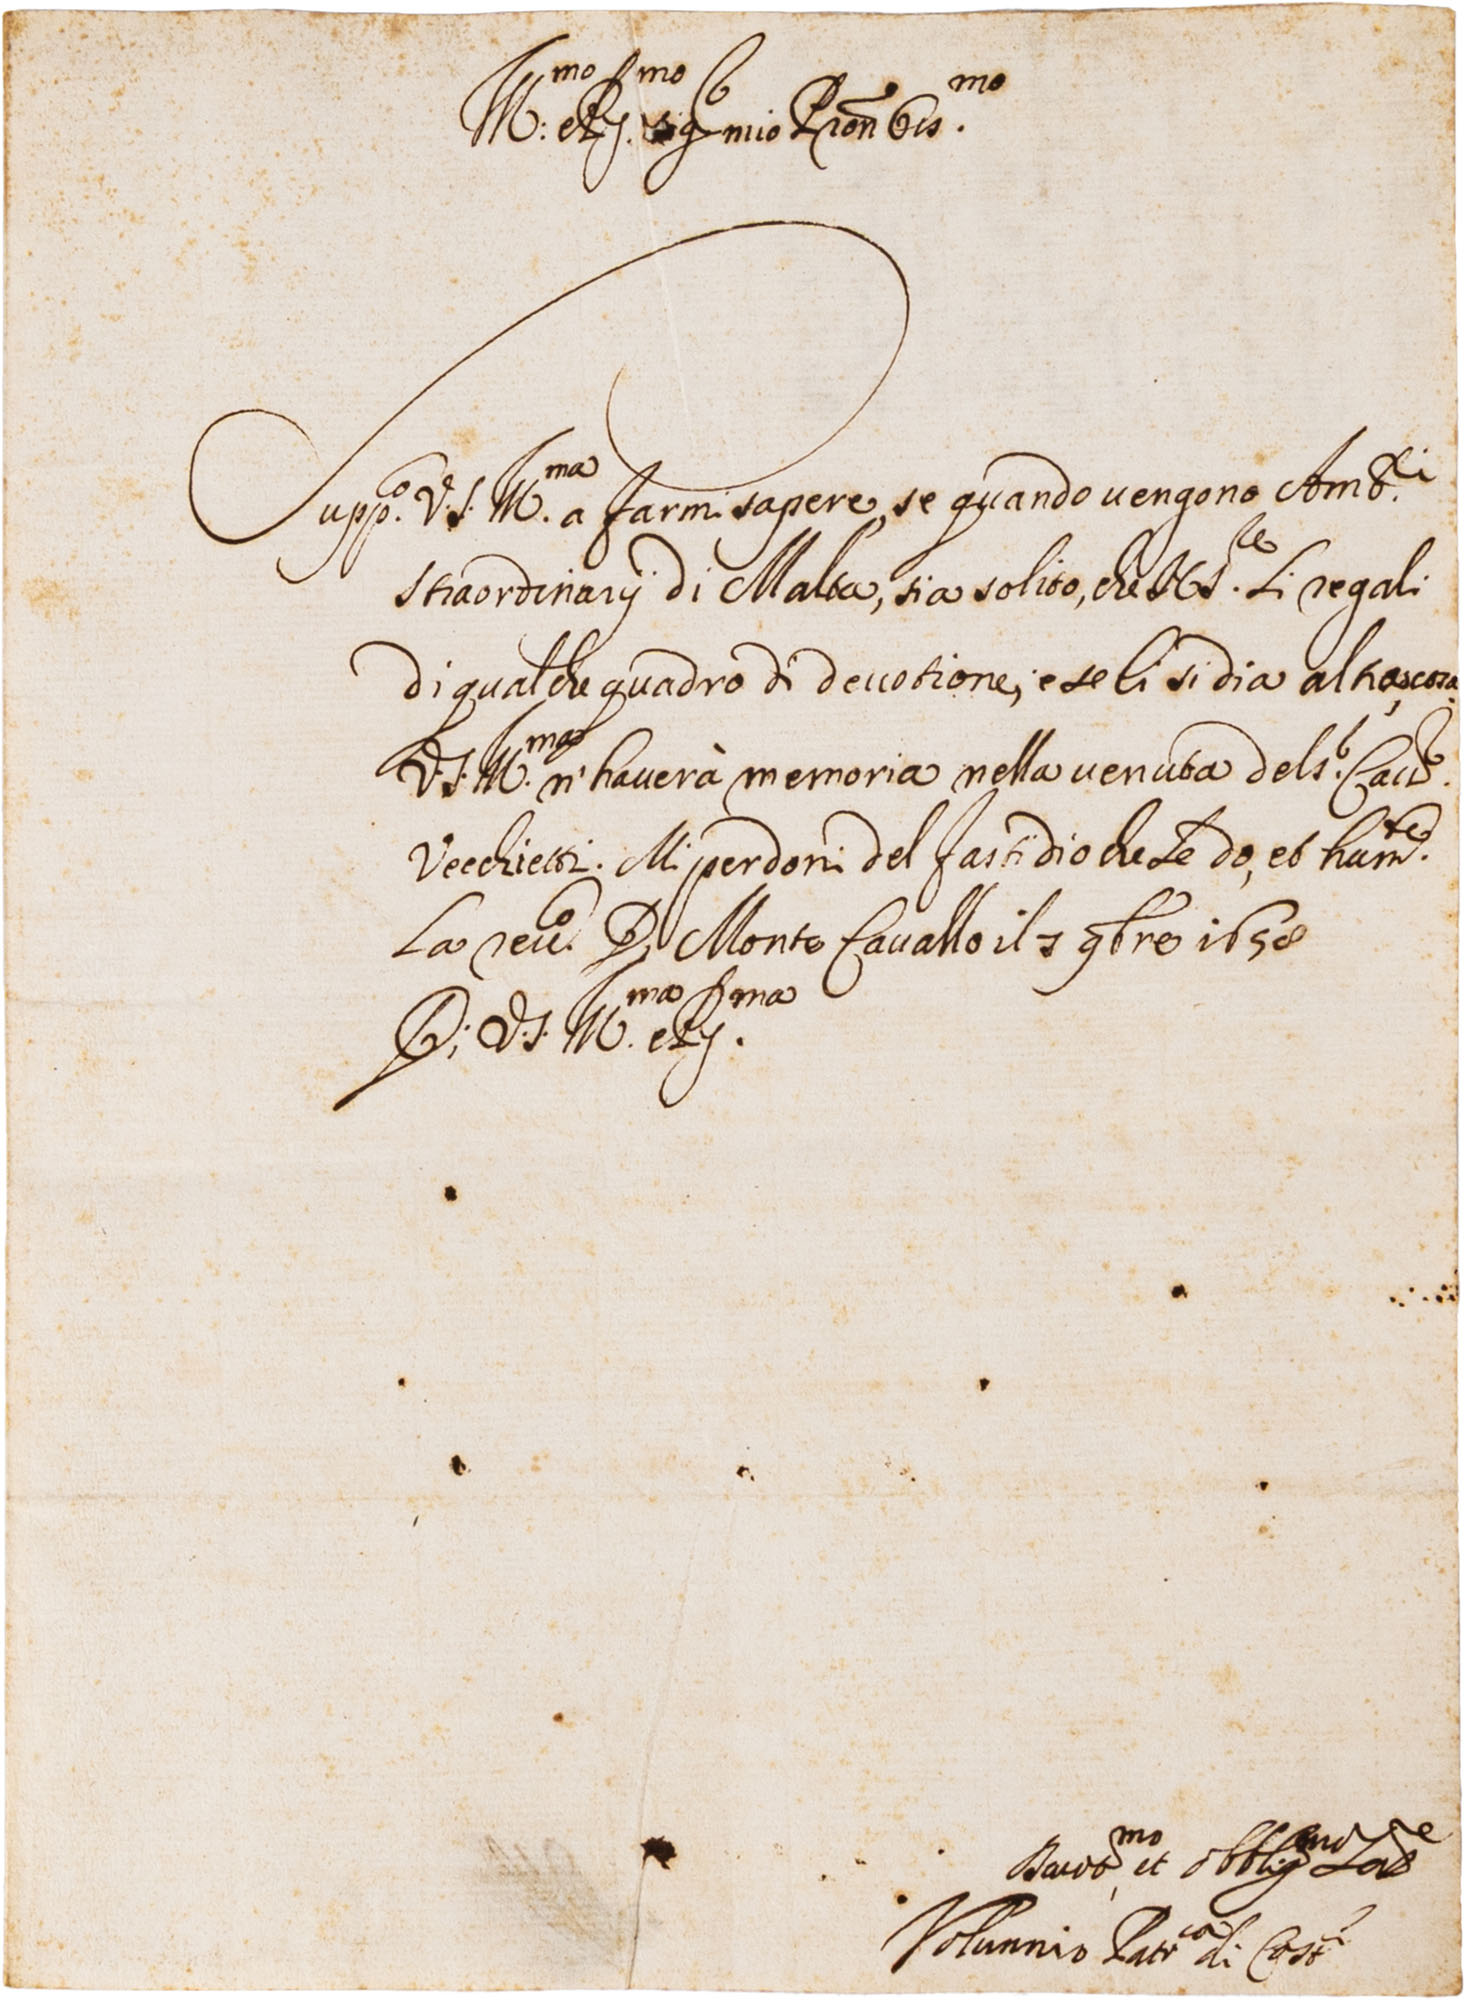 Ill.mo e R.mo Sig.r mio P.ron Oss.mo
Supp.co V.S. Ill.ma a farmi sapere, se quando vengono Amb.ri
straordinarij di Malta, sia solito, che N.S.re li regali
di qualche quadro di devotione, e se li si dia altra cosa
V.S. Ill.ma n'haverà memoria nella venuta del S.r Cav.r
Vecchietti. Mi perdoni del fastidio che Le do, et hum.te
La rev.co Di Monte Cavallo il 9bre 1658
Di V.S. Ill.ma e R.ma
et obblig.mo
Volunnio Patr.ca di Cost.i